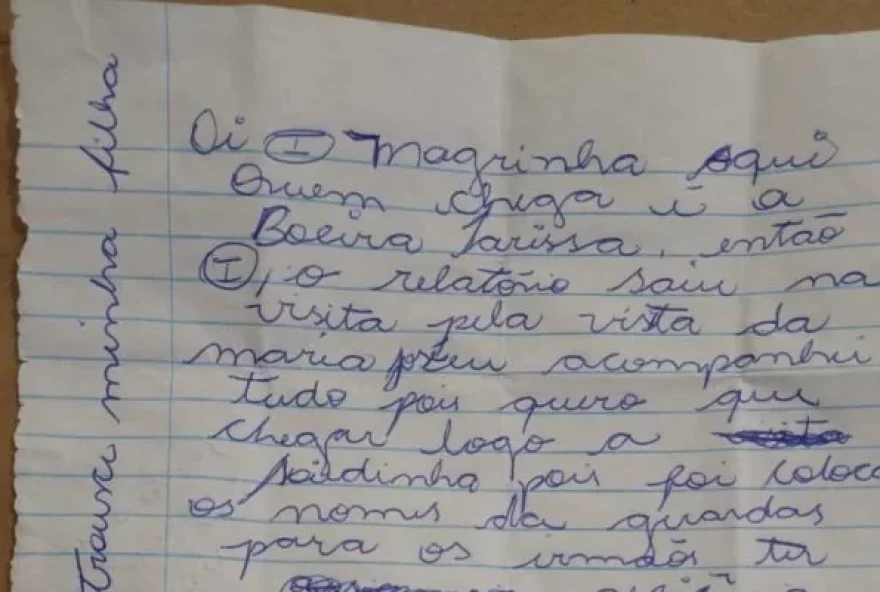 Oi I Magrinha aqui
Quem chega é a
Boeira Larissa, então
I, o relatório saiu na
visita pela vista da
maria eu acompanhei
tudo pois quero que
chegar logo a
saidinha pois foi coloca
os nomes da guardas
para os irmãos ter
Trouxe minha filha